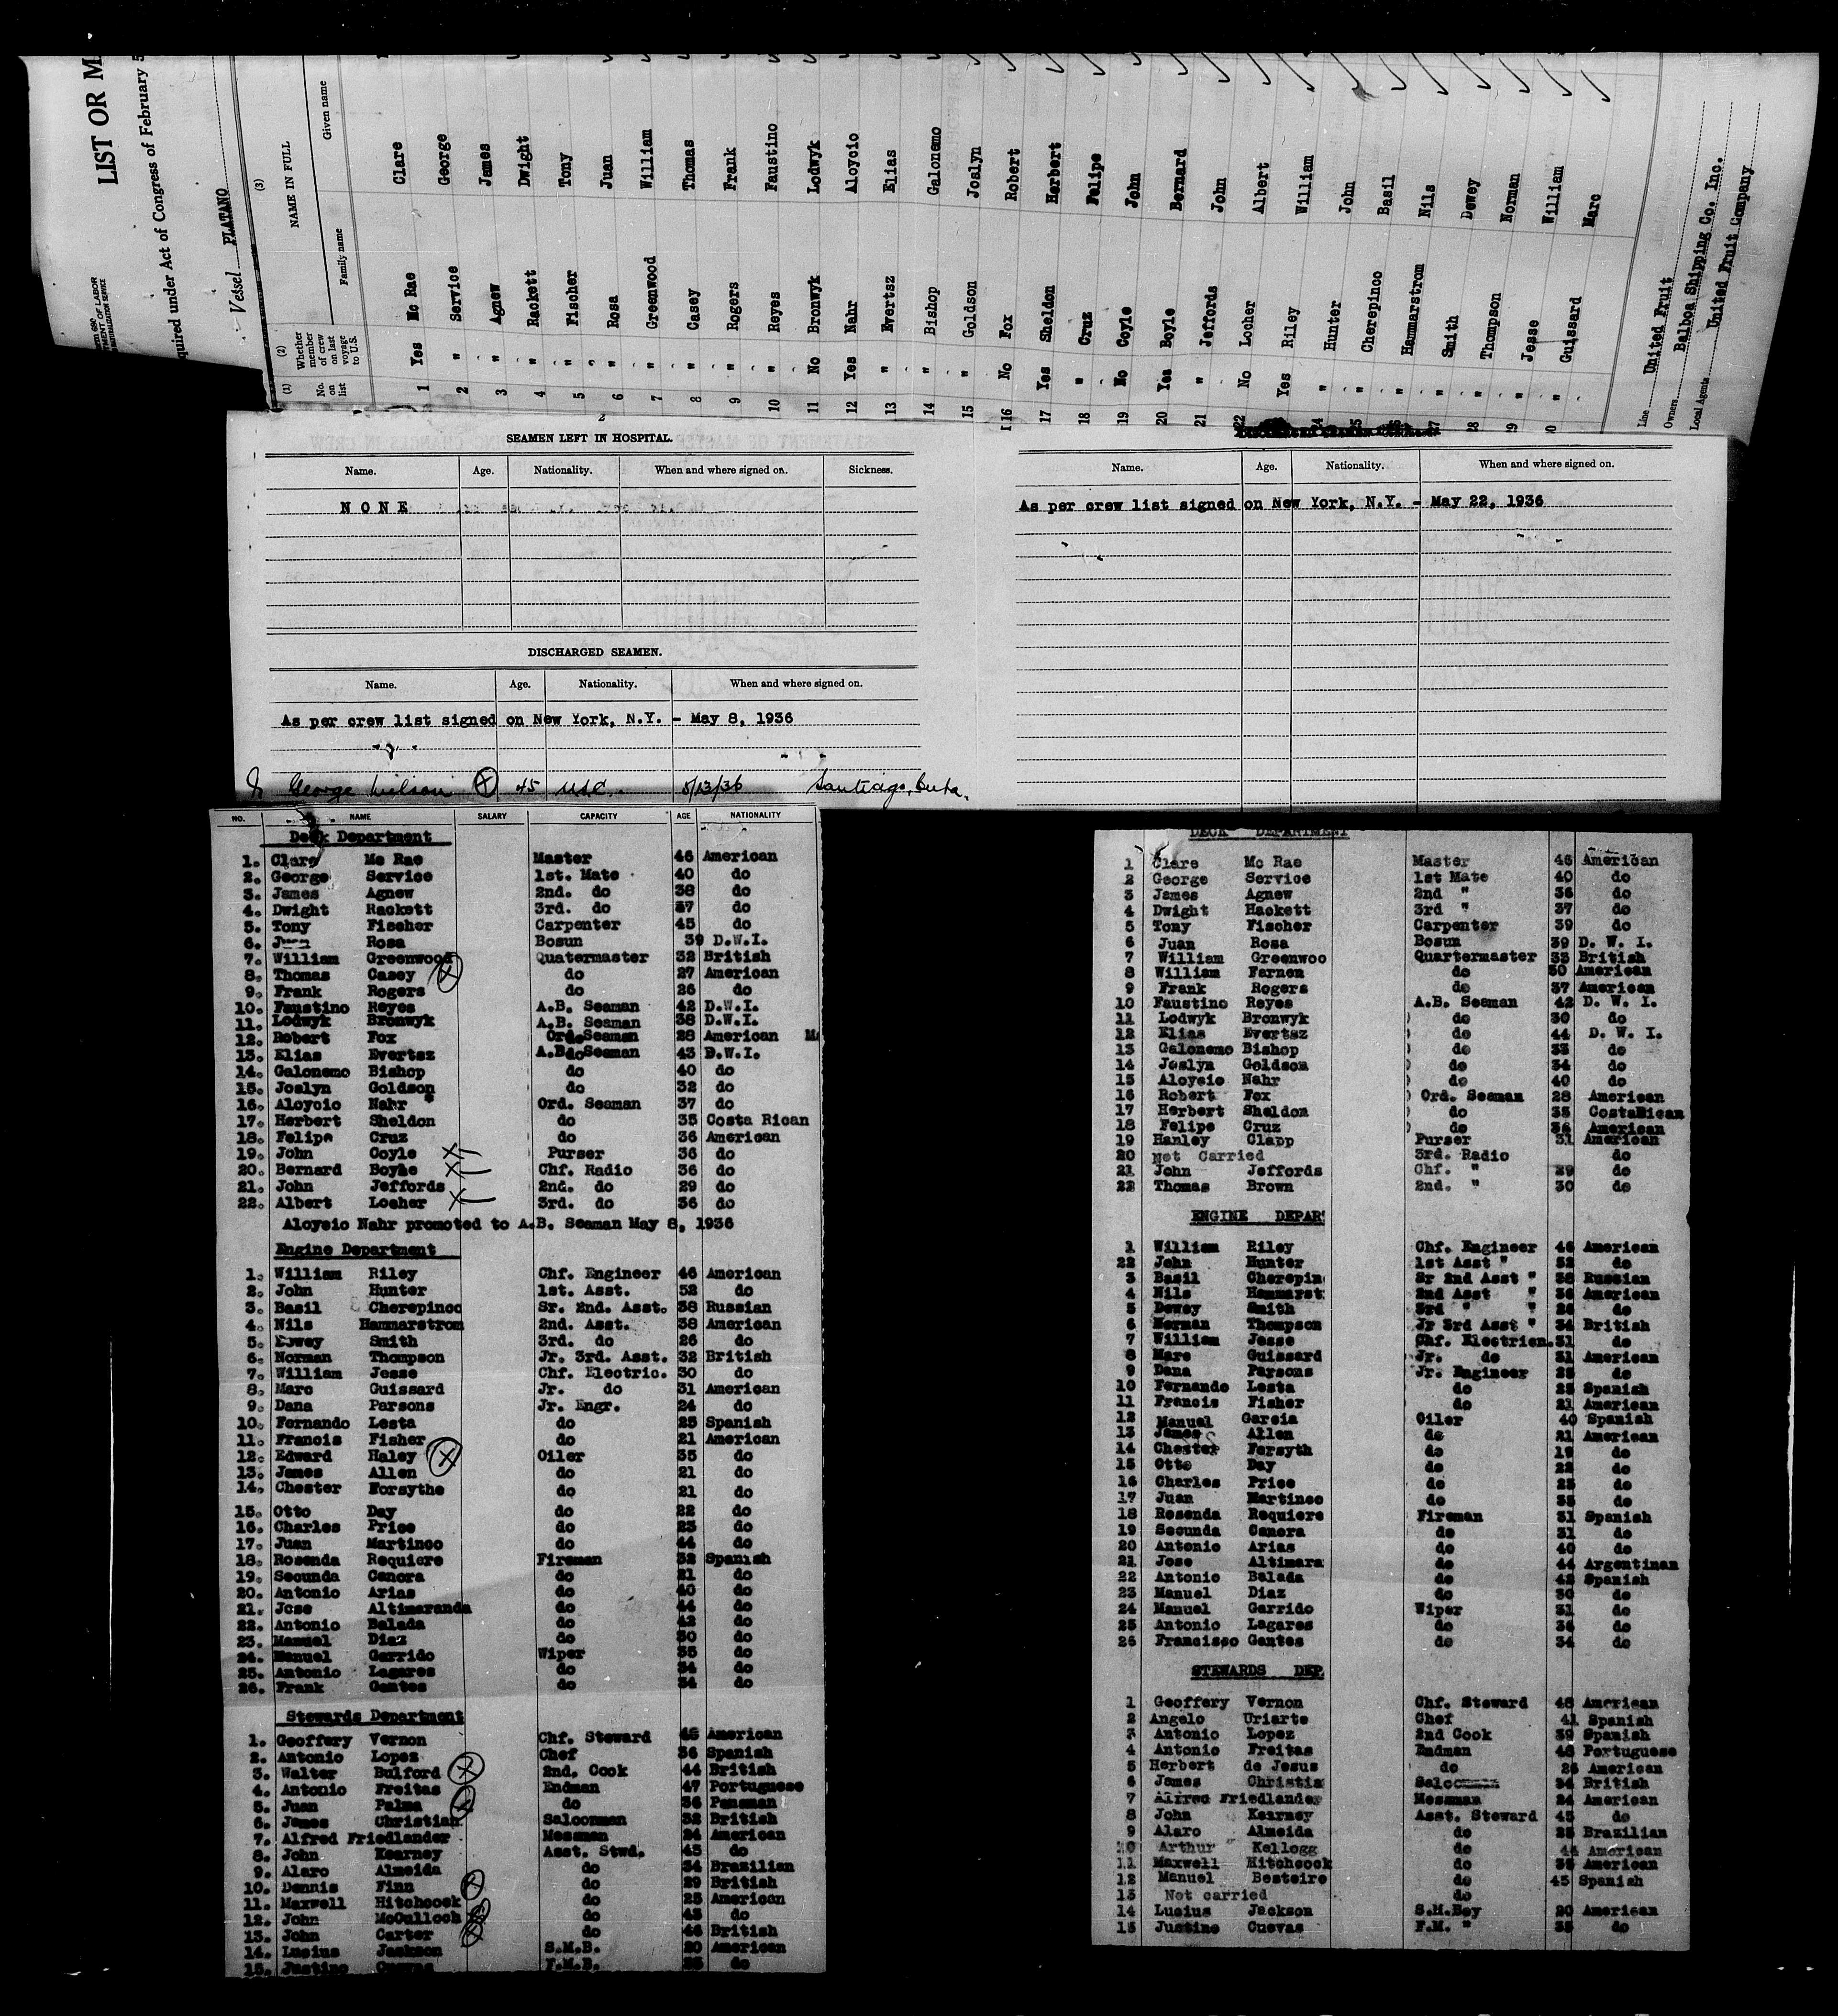 LIST OR M
quired under Act of Congress of February 5
Vessel PLATANO
TMENT OF LABOR
(1) (2) (3)
No. on list Whether member of crew on last voyage to U.S. NAME IN FULL
Family name Given name
1 Yes Mc Rae Clare
2 " Service George
3 " Agnew James
4 " Rackett Dwight
5 " Fischer Tony
6 " Rosa Juan
7 " Greenwood William
8 " Casey Thomas
9 " Rogers Frank
10 " Reyes Faustino
11 No Bronwyk Lodwyk
12 Yes Nahr Aloycio
13 " Evertsz Elias
14 " Bishop Galonemo
15 " Goldson Joslyn
16 No Fox Robert
17 Yes Sheldon Herbert
18 " Cruz Felipe
19 No Coyle John
20 Yes Boyle Bernard
21 " Jeffords John
22 No Locher Albert
Yes Riley William
24 " Hunter John
25 " Cherepinco Basil
26 " Hammarstrom Nils
27 " Smith Dewey
28 " Thompson Norman
29 " Jesse William
30 " Guissard Marc
Line United Fruit
Owners Balboa Shipping Co. Inc.
Local Agents United Fruit Company
SEAMEN LEFT IN HOSPITAL.
Name. Age. Nationality. When and where signed on. Sickness.
N O N E
DISCHARGED SEAMEN.
Name. Age. Nationality. When and where signed on.
As per crew list signed on New York, N.Y. - May 8, 1936
George Wilson 45 U.S.C. 5/13/36 Santiago, Cuba.
Name. Age. Nationality. When and where signed on.
As per crew list signed on New York, N.Y. - May 22, 1936
NO. NAME SALARY CAPACITY AGE NATIONALITY
Deck Department
1. Clare Mc Rae Master 46 American
2. George Service 1st. Mate 40 do
3. James Agnew 2nd. do 38 do
4. Dwight Rackett 3rd. do 37 do
5. Tony Fischer Carpenter 45 do
6. Juan Rosa Bosun 39 D.W.I.
7. William Greenwood Quatermaster 32 British
8. Thomas Casey do 27 American
9. Frank Rogers do 26 do
10. Faustino Reyes A.B. Seaman 42 D.W.I.
11. Lodwyk Bronwyk A.B. Seaman 38 D.W.I.
12. Robert Fox Ord. Seaman 28 American
13. Elias Evertsz A.B. Seaman 43 D.W.I.
14. Galonemo Bishop do 40 do
15. Joslyn Goldson do 32 do
16. Aloycio Nahr Ord. Seaman 37 do
17. Herbert Sheldon do 35 Costa Rican
18. Felipe Cruz do 36 American
19. John Coyle Purser 36 do
20. Bernard Boyle Chf. Radio 36 do
21. John Jeffords 2nd. do 29 do
22. Albert Locher 3rd. do 36 do
Aloysio Nahr promoted to A.B. Seaman May 8, 1936
Engine Department
1. William Riley Chf. Engineer 46 American
2. John Hunter 1st. Asst. 52 do
3. Basil Cherepinco Sr. 2nd. Asst. 38 Russian
4. Nils Hammarstrom 2nd. Asst. 38 American
5. Dewey Smith 3rd. do 26 do
6. Norman Thompson Jr. 3rd. Asst. 32 British
7. William Jesse Chf. Electric. 30 do
8. Marc Guissard Jr. do 31 American
9. Dana Parsons Jr. Engr. 24 do
10. Fernando Lesta do 25 Spanish
11. Francis Fisher do 21 American
12. Edward Haley Oiler 35 do
13. James Allen do 21 do
14. Chester Forsythe do 21 do
15. Otto Day do 22 do
16. Charles Price do 23 do
17. Juan Martinco do 44 do
18. Rosenda Requiere Fireman 32 Spanish
19. Secunda Canora do 21 do
20. Antonio Arias do 40 do
21. Jose Altimaranda do 44 do
22. Antonio Balada do 42 do
23. Manuel Diaz do 30 do
24. Manuel Garrido Wiper 35 do
25. Antonio Lagares do 34 do
26. Frank Gantes do 34 do
Stewards Department
1. Geoffery Vernon Chf. Steward 48 American
2. Antonio Lopez Chef 36 Spanish
3. Walter Bulford 2nd. Cook 44 British
4. Antonio Freitas Endman 47 Portuguese
5. Juan Palma do 36 Panaman
6. James Christian Saloonman 32 British
7. Alfred Friedlander Messman 24 American
8. John Kearney Asst. Stwd. 45 do
9. Alaro Almeida do 34 Brazilian
10. Dennis Finn do 29 British
11. Maxwell Hitchcock do 25 American
12. John McCulloch do 43 do
13. John Carter do 46 British
14. Lusius Jackson S.M.B. 20 American
15. Justino Cuevas F.M.B. 35 do
DECK DEPARTMENT
1 Clare Mc Rae Master 46 American
2 George Service 1st Mate 40 do
3 James Agnew 2nd " 36 do
4 Dwight Hackett 3rd " 37 do
5 Tony Fischer Carpenter 39 do
6 Juan Rosa Bosun 39 D. W. I.
7 William Greenwoo Quartermaster 33 British
8 William Farnen do 50 American
9 Frank Rogers do 37 American
10 Faustino Reyes A.B. Seaman 42 D. W. I.
11 Lodwyk Bronwyk do 30 do
12 Elias Evertsz do 44 D. W. I.
13 Galonemo Bishop do 33 do
14 Joslyn Goldson do 34 do
15 Aloysio Nahr do 40 do
16 Robert Fox Ord. Seaman 28 American
17 Herbert Sheldon do 35 CostaRican
18 Felipe Cruz do 36 American
19 Hanley Clapp Purser 31 American
20 Not Carried 3rd. Radio do
21 John Jeffords Chf. " 29 do
22 Thomas Brown 2nd. " 30 do
ENGINE DEPAR
1 William Riley Chf. Engineer 46 American
22 John Hunter 1st Asst " 52 do
3 Basil Cherepin Sr 2nd Asst " 38 Russian
4 Nils Hammarst 2nd Asst " 36 American
5 Dewey Smith 3rd " " 26 do
6 Norman Thompson Jr 3rd Asst " 34 British
7 William Jesse Chf. Electrien. 31 do
8 Marc Guissard Jr. do 31 American
9 Dana Parsons Jr. Engineer 25 do
10 Fernando Lesta do 25 Spanish
11 Francis Fisher do 21 American
12 Manuel Garcia Oiler 40 Spanish
13 James Allen do 21 American
14 Chester Forsyth do 19 do
15 Otto Day do 22 do
16 Charles Price do 23 do
17 Juan Martinco do 33 do
18 Rosenda Requiere Fireman 31 Spanish
19 Secunda Canora do 31 do
20 Antonio Arias do 40 do
21 Jose Altimara do 44 Argentinan
22 Antonio Balada do 42 Spanish
23 Manuel Diaz do 30 do
24 Manuel Garrido Wiper 31 do
25 Antonio Lagares do 34 do
26 Francisco Gantes do 34 do
STEWARDS DEP.
1 Geoffery Vernon Chf. Steward 48 American
2 Angelo Uriarte Chef 41 Spanish
3 Antonio Lopez 2nd Cook 39 Spanish
4 Antonio Freitas Endman 48 Portuguese
5 Herbert de Jesus do 26 American
6 James Christia 34 British
7 Alfred Friedlander Messman 24 American
8 John Kearney Asst. Steward 45 do
9 Alaro Almeida do 25 Brazilian
10 Arthur Kellogg do 44 American
11 Maxwell Hitchcock do 35 American
12 Manuel Besteiro do 45 Spanish
13 Not carried do
14 Lusius Jackson S.M.Boy 20 American
15 Justino Cuevas F.M. " 35 do